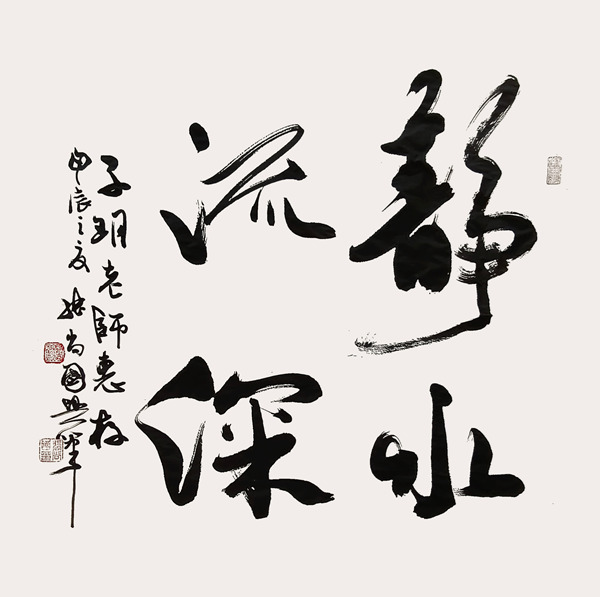 靜水
流深
子玥老師惠存
甲辰之夏 尚國興筆